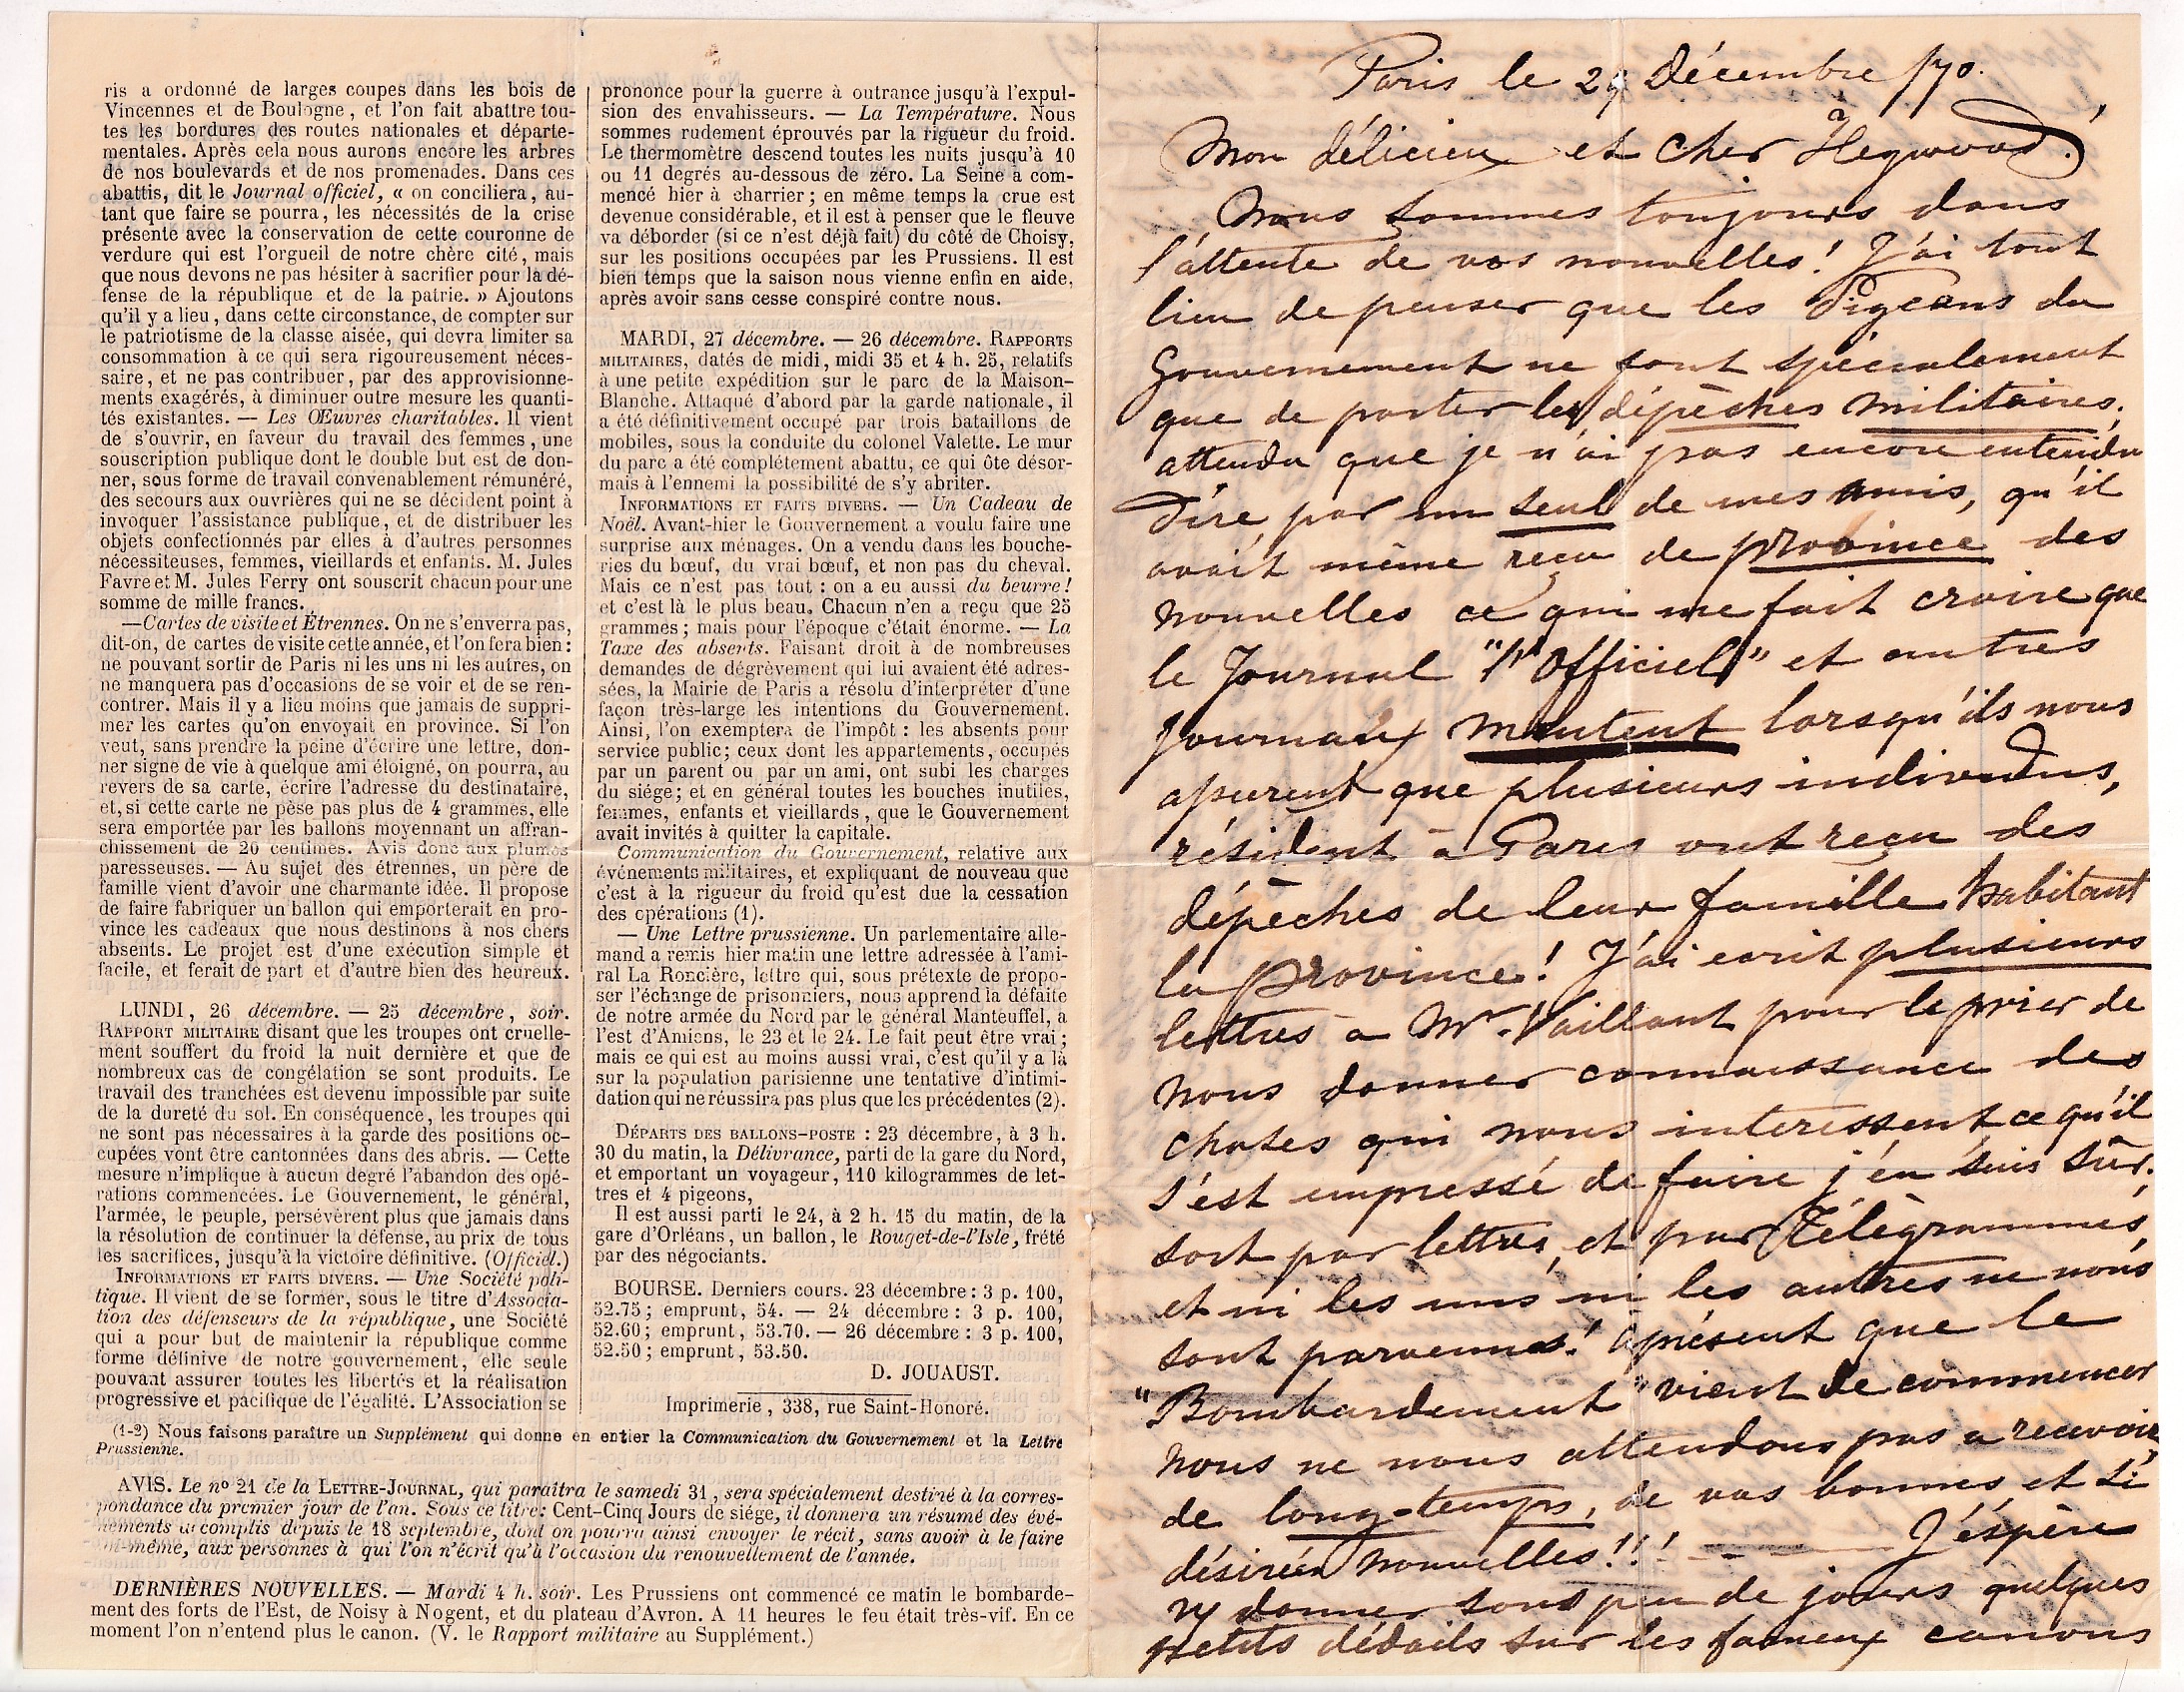 ris a ordonné de larges coupes dans les bois de
Vincennes et de Boulogne, et l'on fait abattre tou-
tes les bordures des routes nationales et départe-
mentales. Après cela nous aurons encore les arbres
de nos boulevards et de nos promenades. Dans ces
abattis, dit le Journal officiel, « on conciliera, au-
tant que faire se pourra, les nécessités de la crise
présente avec la conservation de cette couronne de
verdure qui est l'orgueil de notre chère cité, mais
que nous devons ne pas hésiter à sacrifier pour la dé-
fense de la république et de la patrie. » Ajoutons
qu'il y a lieu, dans cette circonstance, de compter sur
le patriotisme de la classe aisée, qui devra limiter sa
consommation à ce qui sera rigoureusement néces-
saire, et ne pas contribuer, par des approvisionne-
ments exagérés, à diminuer outre mesure les quanti-
tés existantes. — Les Œuvres charitables. Il vient
de s'ouvrir, en faveur du travail des femmes, une
souscription publique dont le double but est de don-
ner, sous forme de travail convenablement rémunéré,
des secours aux ouvrières qui ne se décident point à
invoquer l'assistance publique, et de distribuer les
objets confectionnés par elles à d'autres personnes
nécessiteuses, femmes, vieillards et enfants. M. Jules
Favre et M. Jules Ferry ont souscrit chacun pour une
somme de mille francs.
—Cartes de visite et Étrennes. On ne s'enverra pas,
dit-on, de cartes de visite cette année, et l'on fera bien :
ne pouvant sortir de Paris ni les uns ni les autres, on
ne manquera pas d'occasions de se voir et de se ren-
contrer. Mais il y a lieu moins que jamais de suppri-
mer les cartes qu'on envoyait en province. Si l'on
veut, sans prendre la peine d'écrire une lettre, don-
ner signe de vie à quelque ami éloigné, on pourra, au
revers de sa carte, écrire l'adresse du destinataire,
et, si cette carte ne pèse pas plus de 4 grammes, elle
sera emportée par les ballons moyennant un affran-
chissement de 20 centimes. Avis donc aux plumes
paresseuses. — Au sujet des étrennes, un père de
famille vient d'avoir une charmante idée. Il propose
de faire fabriquer un ballon qui emporterait en pro-
vince les cadeaux que nous destinons à nos chers
absents. Le projet est d'une exécution simple et
facile, et ferait de part et d'autre bien des heureux.
LUNDI, 26 décembre. — 25 décembre, soir.
RAPPORT MILITAIRE disant que les troupes ont cruelle-
ment souffert du froid la nuit dernière et que de
nombreux cas de congélation se sont produits. Le
travail des tranchées est devenu impossible par suite
de la dureté du sol. En conséquence, les troupes qui
ne sont pas nécessaires à la garde des positions oc-
cupées vont être cantonnées dans des abris. — Cette
mesure n'implique à aucun degré l'abandon des opé-
rations commencées. Le Gouvernement, le général,
l'armée, le peuple, persévèrent plus que jamais dans
la résolution de continuer la défense, au prix de tous
les sacrifices, jusqu'à la victoire définitive. (Officiel.)
INFORMATIONS ET FAITS DIVERS. — Une Société poli-
tique. Il vient de se former, sous le titre d'Associa-
tion des défenseurs de la république, une Société
qui a pour but de maintenir la république comme
forme définive de notre gouvernement, elle seule
pouvant assurer toutes les libertés et la réalisation
progressive et pacifique de l'égalité. L'Association se
prononce pour la guerre à outrance jusqu'à l'expul-
sion des envahisseurs. — La Température. Nous
sommes rudement éprouvés par la rigueur du froid.
Le thermomètre descend toutes les nuits jusqu'à 10
ou 11 degrés au-dessous de zéro. La Seine a com-
mencé hier à charrier ; en même temps la crue est
devenue considérable, et il est à penser que le fleuve
va déborder (si ce n'est déjà fait) du côté de Choisy,
sur les positions occupées par les Prussiens. Il est
bien temps que la saison nous vienne enfin en aide,
après avoir sans cesse conspiré contre nous.
MARDI, 27 décembre. — 26 décembre. RAPPORTS
MILITAIRES, datés de midi, midi 35 et 4 h. 25, relatifs
à une petite expédition sur le parc de la Maison-
Blanche. Attaqué d'abord par la garde nationale, il
a été définitivement occupé par trois bataillons de
mobiles, sous la conduite du colonel Valette. Le mur
du parc a été complétement abattu, ce qui ôte désor-
mais à l'ennemi la possibilité de s'y abriter.
INFORMATIONS ET FAITS DIVERS. — Un Cadeau de
Noël. Avant-hier le Gouvernement a voulu faire une
surprise aux ménages. On a vendu dans les bouche-
ries du bœuf, du vrai bœuf, et non pas du cheval.
Mais ce n'est pas tout : on a eu aussi du beurre !
et c'est là le plus beau. Chacun n'en a reçu que 25
grammes ; mais pour l'époque c'était énorme. — La
Taxe des absents. Faisant droit à de nombreuses
demandes de dégrèvement qui lui avaient été adres-
sées, la Mairie de Paris a résolu d'interpréter d'une
façon très-large les intentions du Gouvernement.
Ainsi, l'on exemptera de l'impôt : les absents pour
service public ; ceux dont les appartements, occupés
par un parent ou par un ami, ont subi les charges
du siége ; et en général toutes les bouches inutiles,
femmes, enfants et vieillards, que le Gouvernement
avait invités à quitter la capitale.
Communication du Gouvernement, relative aux
événements militaires, et expliquant de nouveau que
c'est à la rigueur du froid qu'est due la cessation
des opérations (1).
— Une Lettre prussienne. Un parlementaire alle-
mand a remis hier matin une lettre adressée à l'ami-
ral La Roncière, lettre qui, sous prétexte de propo-
ser l'échange de prisonniers, nous apprend la défaite
de notre armée du Nord par le général Manteuffel, à
l'est d'Amiens, le 23 et le 24. Le fait peut être vrai ;
mais ce qui est au moins aussi vrai, c'est qu'il y a là
sur la population parisienne une tentative d'intimi-
dation qui ne réussira pas plus que les précédentes (2).
DÉPARTS DES BALLONS-POSTE : 23 décembre, à 3 h.
30 du matin, la Délivrance, parti de la gare du Nord,
et emportant un voyageur, 110 kilogrammes de let-
tres et 4 pigeons,
Il est aussi parti le 24, à 2 h. 15 du matin, de la
gare d'Orléans, un ballon, le Rouget-de-l'Isle, frété
par des négociants.
BOURSE. Derniers cours. 23 décembre : 3 p. 100,
52.75 ; emprunt, 54. — 24 décembre : 3 p. 100,
52.60 ; emprunt, 53.70. — 26 décembre : 3 p. 100,
52.50 ; emprunt, 53.50.
D. JOUAUST.
Imprimerie, 338, rue Saint-Honoré.
(1-2) Nous faisons paraître un Supplément qui donne en entier la Communication du Gouvernement et la Lettre
Prussienne.
AVIS. Le nº 21 de la LETTRE-JOURNAL, qui paraîtra le samedi 31, sera spécialement destiné à la corres-
pondance du premier jour de l'an. Sous ce titre : Cent-Cinq Jours de siége, il donnera un résumé des évé-
nements accomplis depuis le 18 septembre, dont on pourra ainsi envoyer le récit, sans avoir à le faire
soi-même, aux personnes à qui l'on n'écrit qu'à l'occasion du renouvellement de l'année.
DERNIÈRES NOUVELLES. — Mardi 4 h. soir. Les Prussiens ont commencé ce matin le bombarde-
ment des forts de l'Est, de Noisy à Nogent, et du plateau d'Avron. A 11 heures le feu était très-vif. En ce
moment l'on n'entend plus le canon. (V. le Rapport militaire au Supplément.)
Paris le 29 Décembre /70.
Mon délicieux et cher Heywood.
Nous sommes toujours dans
l'attente de vos nouvelles ! J'ai tout
lieu de penser que les Pigeons du
Gouvernement ne font spécialement
que de porter les dépèches militaires,
attendu que je n'ai pas encore entendu
dire, par un seul de mes amis, qu'il
avait même reçu de province des
nouvelles ce qui me fait croire que
le Journal "l'Officiel" et autres
journaux mentent lorsqu'ils nous
assurent que plusieurs individus,
résident à Paris ont reçu des
dépèches de leur famille habitant
la province ! J'ai ecrit plusieurs
lettres a Mr. Vaillant pour le prier de
nous donner connaissance des
choses qui nous interessent ce qu'il
s'est empressé de faire j'en suis sûr,
soit par lettres, et par Télègrammes,
et ni les uns ni les autres ne nous
sont parvenus ! àprésent que le
"Bombardement" vient de commencer
nous ne nous attendons pas a recevoir
de long-temps, de vos bonnes et si
désirées nouvelles !!! J'éspère
vs donner sous peu de jours quelques
petits détails sur les fameux canons